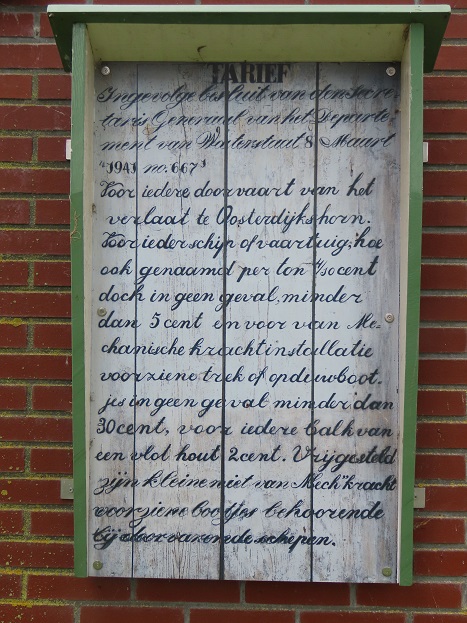 TARIEF
Ingevolge besluit van den Secre-
taris Generaal van het Departe-
ment van Waterstaat 8 Maart
"1941 no. 667"
Voor iedere doorvaart van het
verlaat te Oosterdijkshorn.
Voor ieder schip of vaartuig, hoe
ook genaamd per ton 1/50 cent
doch in geen geval, minder
dan 5 cent en voor van Me-
chanische krachtinstallatie
voorziene trek of opduwboot.
jes in geen geval minder dan
30 cent, voor iedere balk van
een vlot hout 2 cent. Vrijgesteld
zijn kleine niet van Mech" kracht
voorziene bootjes behoorende
bij doorvarende schepen.